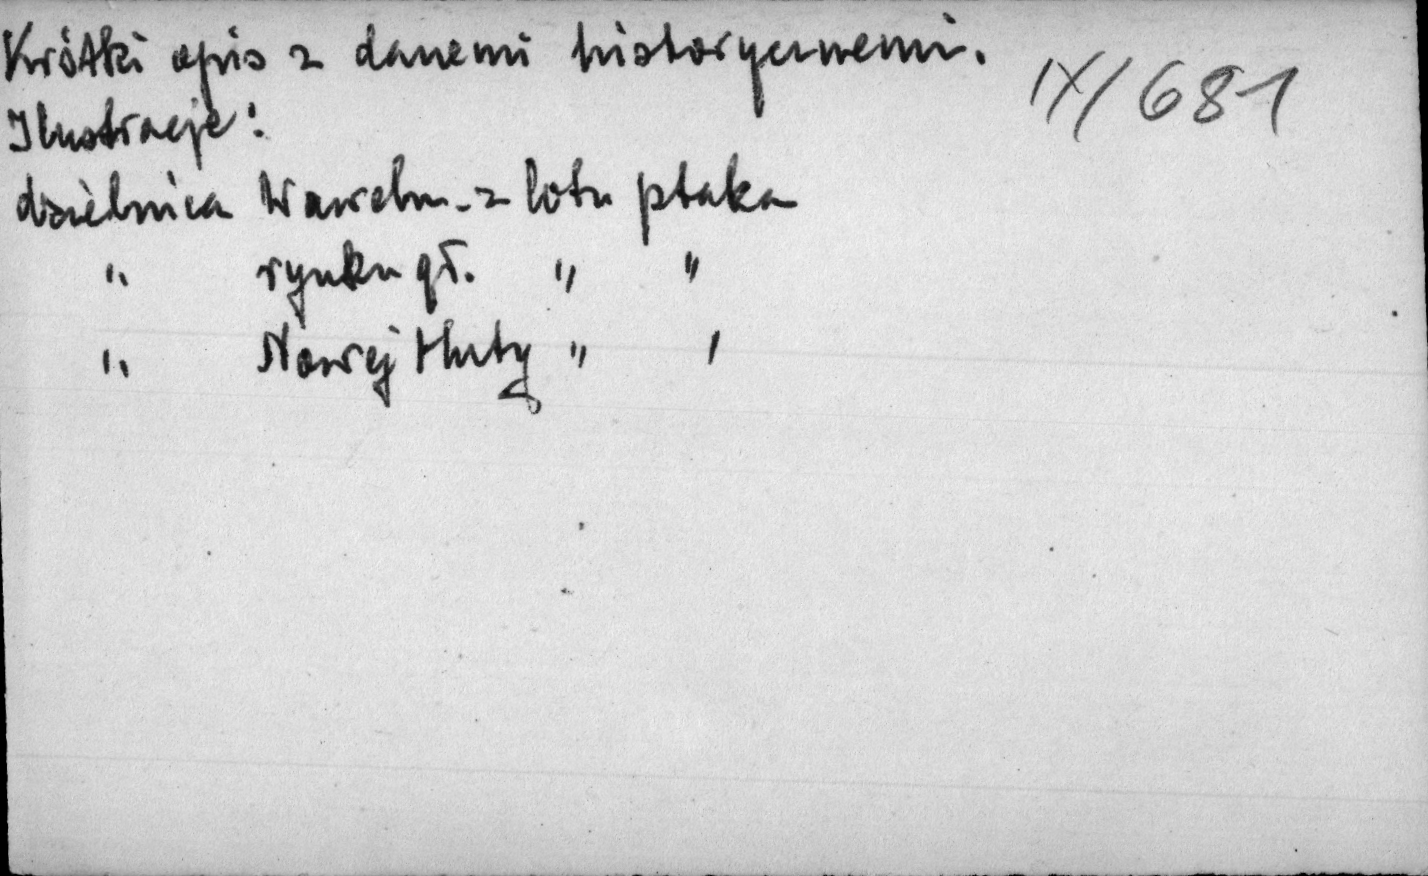 Krótki opis z danemi historycznemi.
IX/681
Ilustracje:
dzielnica Wawelu - z lotu ptaka
" rynku gł. " "
" Nowej Huty " '